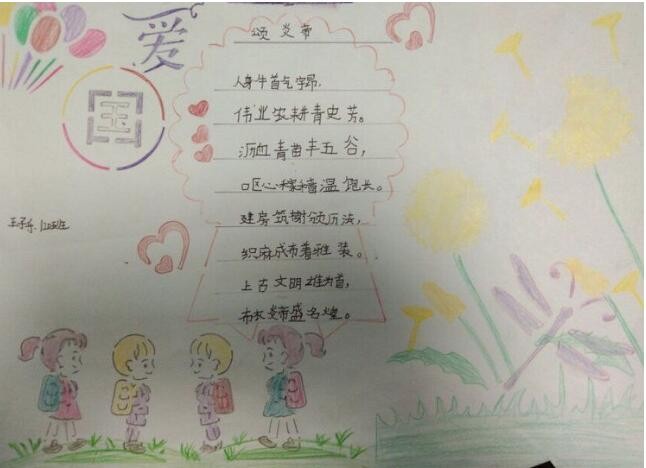 爱
国
颂炎帝
人身牛首气宇昂,
伟业农耕青史芳。
沥血青苗丰五谷,
呕心稼穑温饱长。
建房筑榭颁历法,
织麻成布着雅装。
上古文明雄为首,
炎帝盛名煌。
班